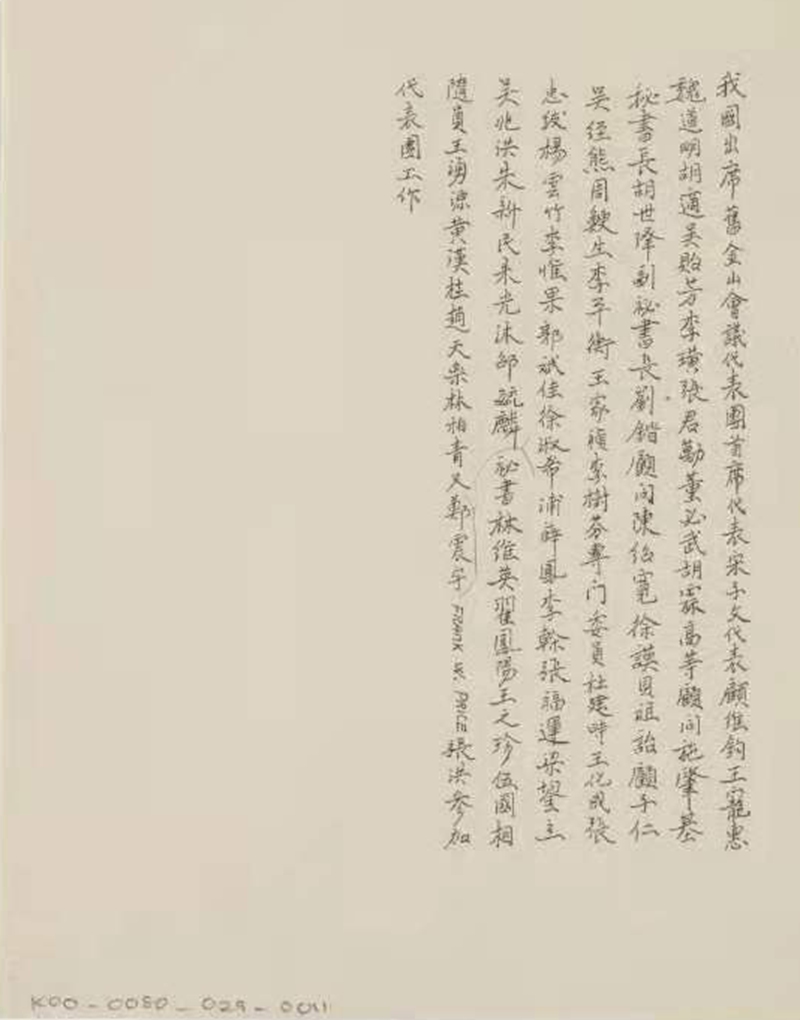 我國出席舊金山會議代表團首席代表宋子文代表顧維鈞王寵惠
魏道明胡適吳貽芳李璜張君勱董必武胡霖高等顧問施肇基
秘書長胡世澤副祕書長劉鍇顧問陳紹寬徐謨貝祖詒顧子仁
吳經熊周鯁生李平衡王家楨李樹芬專门委員杜建時王化成張
忠紱楊雲竹李惟果郭斌佳徐淑希浦薛鳳李榦張福運梁鋆立
吴兆洪朱新民宋光沐邹毓麟祕書林維英翟鳳陽王之珍伍國相
隨員王湧源黃漢柱趙天樂林柏青又鄭震宇FRANK W. PRICE張洪參加
代表團工作
K00-0080-029-0011